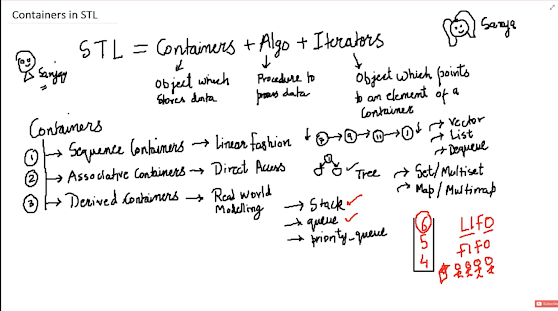 Containers in STL
STL = Containers + Algo + Iterators
Sanjay
Object which
stores data
Procedure to
process data
Object which points
to an element of a
Container
Containers
1 → Sequence Containers → Linear fashion
→ Vector
→ List
→ Dequeue
2 → Associative Containers → Direct Access
Tree
→ Set/Multiset
→ Map/Multimap
3 → Derived Containers → Real World
Modelling
→ Stack
→ queue
→ priority_queue
6
5
4
LIFO
FIFO